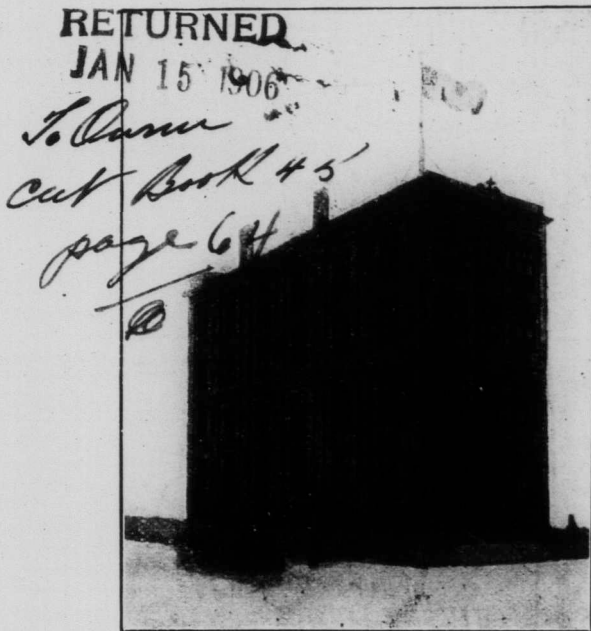 RETURNED
JAN 15 1906
To Owner
cut Book 45
page 64